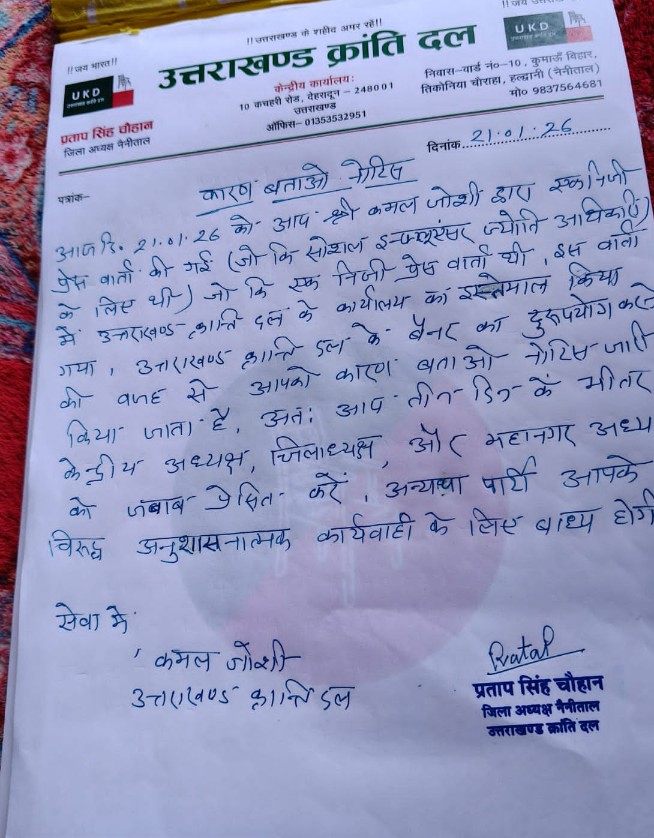 !! उत्तराखण्ड के शहीद अमर रहें!!
!! जय भारत!!
UKD
उत्तराखण्ड क्रांति दल
UKD
केन्द्रीय कार्यालय:
10 कचहरी रोड, देहरादून - 248001
उत्तराखण्ड
ऑफिस- 01353532951
निवास-वार्ड नं०-10, कुमाऊँ विहार,
तिकोनिया चौराहा, हल्द्वानी (नैनीताल)
मो० 9837564681
प्रताप सिंह चौहान
जिला अध्यक्ष नैनीताल
पत्रांक-
दिनांक 21.01.26
कारण बताओ नोटिस
आज दि. 21.01.26 को आप श्री कमल जोशी द्वारा एक निजी
प्रेस वार्ता की गई (जो कि सोशल इन्फ्लूएंसर ज्योति अधिकारी
के लिए थी) जो कि एक निजी प्रेस वार्ता थी, इस वार्ता
में उत्तराखण्ड क्रान्ति दल के कार्यालय का इस्तेमाल किया
गया, उत्तराखण्ड क्रान्ति दल के बैनर का दुरूपयोग करने
की वजह से आपको कारण बताओ नोटिस जारी
किया जाता है, अतः आप तीन दिन के भीतर
केन्द्रीय अध्यक्ष, जिलाध्यक्ष, और महानगर अध्य
को जबाब प्रेसित करें, अन्यथा पार्टी आपके
विरूद्ध अनुशासनात्मक कार्यवाही के लिए बाध्य होगी
सेवा में
कमल जोशी
उत्तराखण्ड क्रान्ति दल
Pratap
प्रताप सिंह चौहान
जिला अध्यक्ष नैनीताल
उत्तराखण्ड क्रांति दल